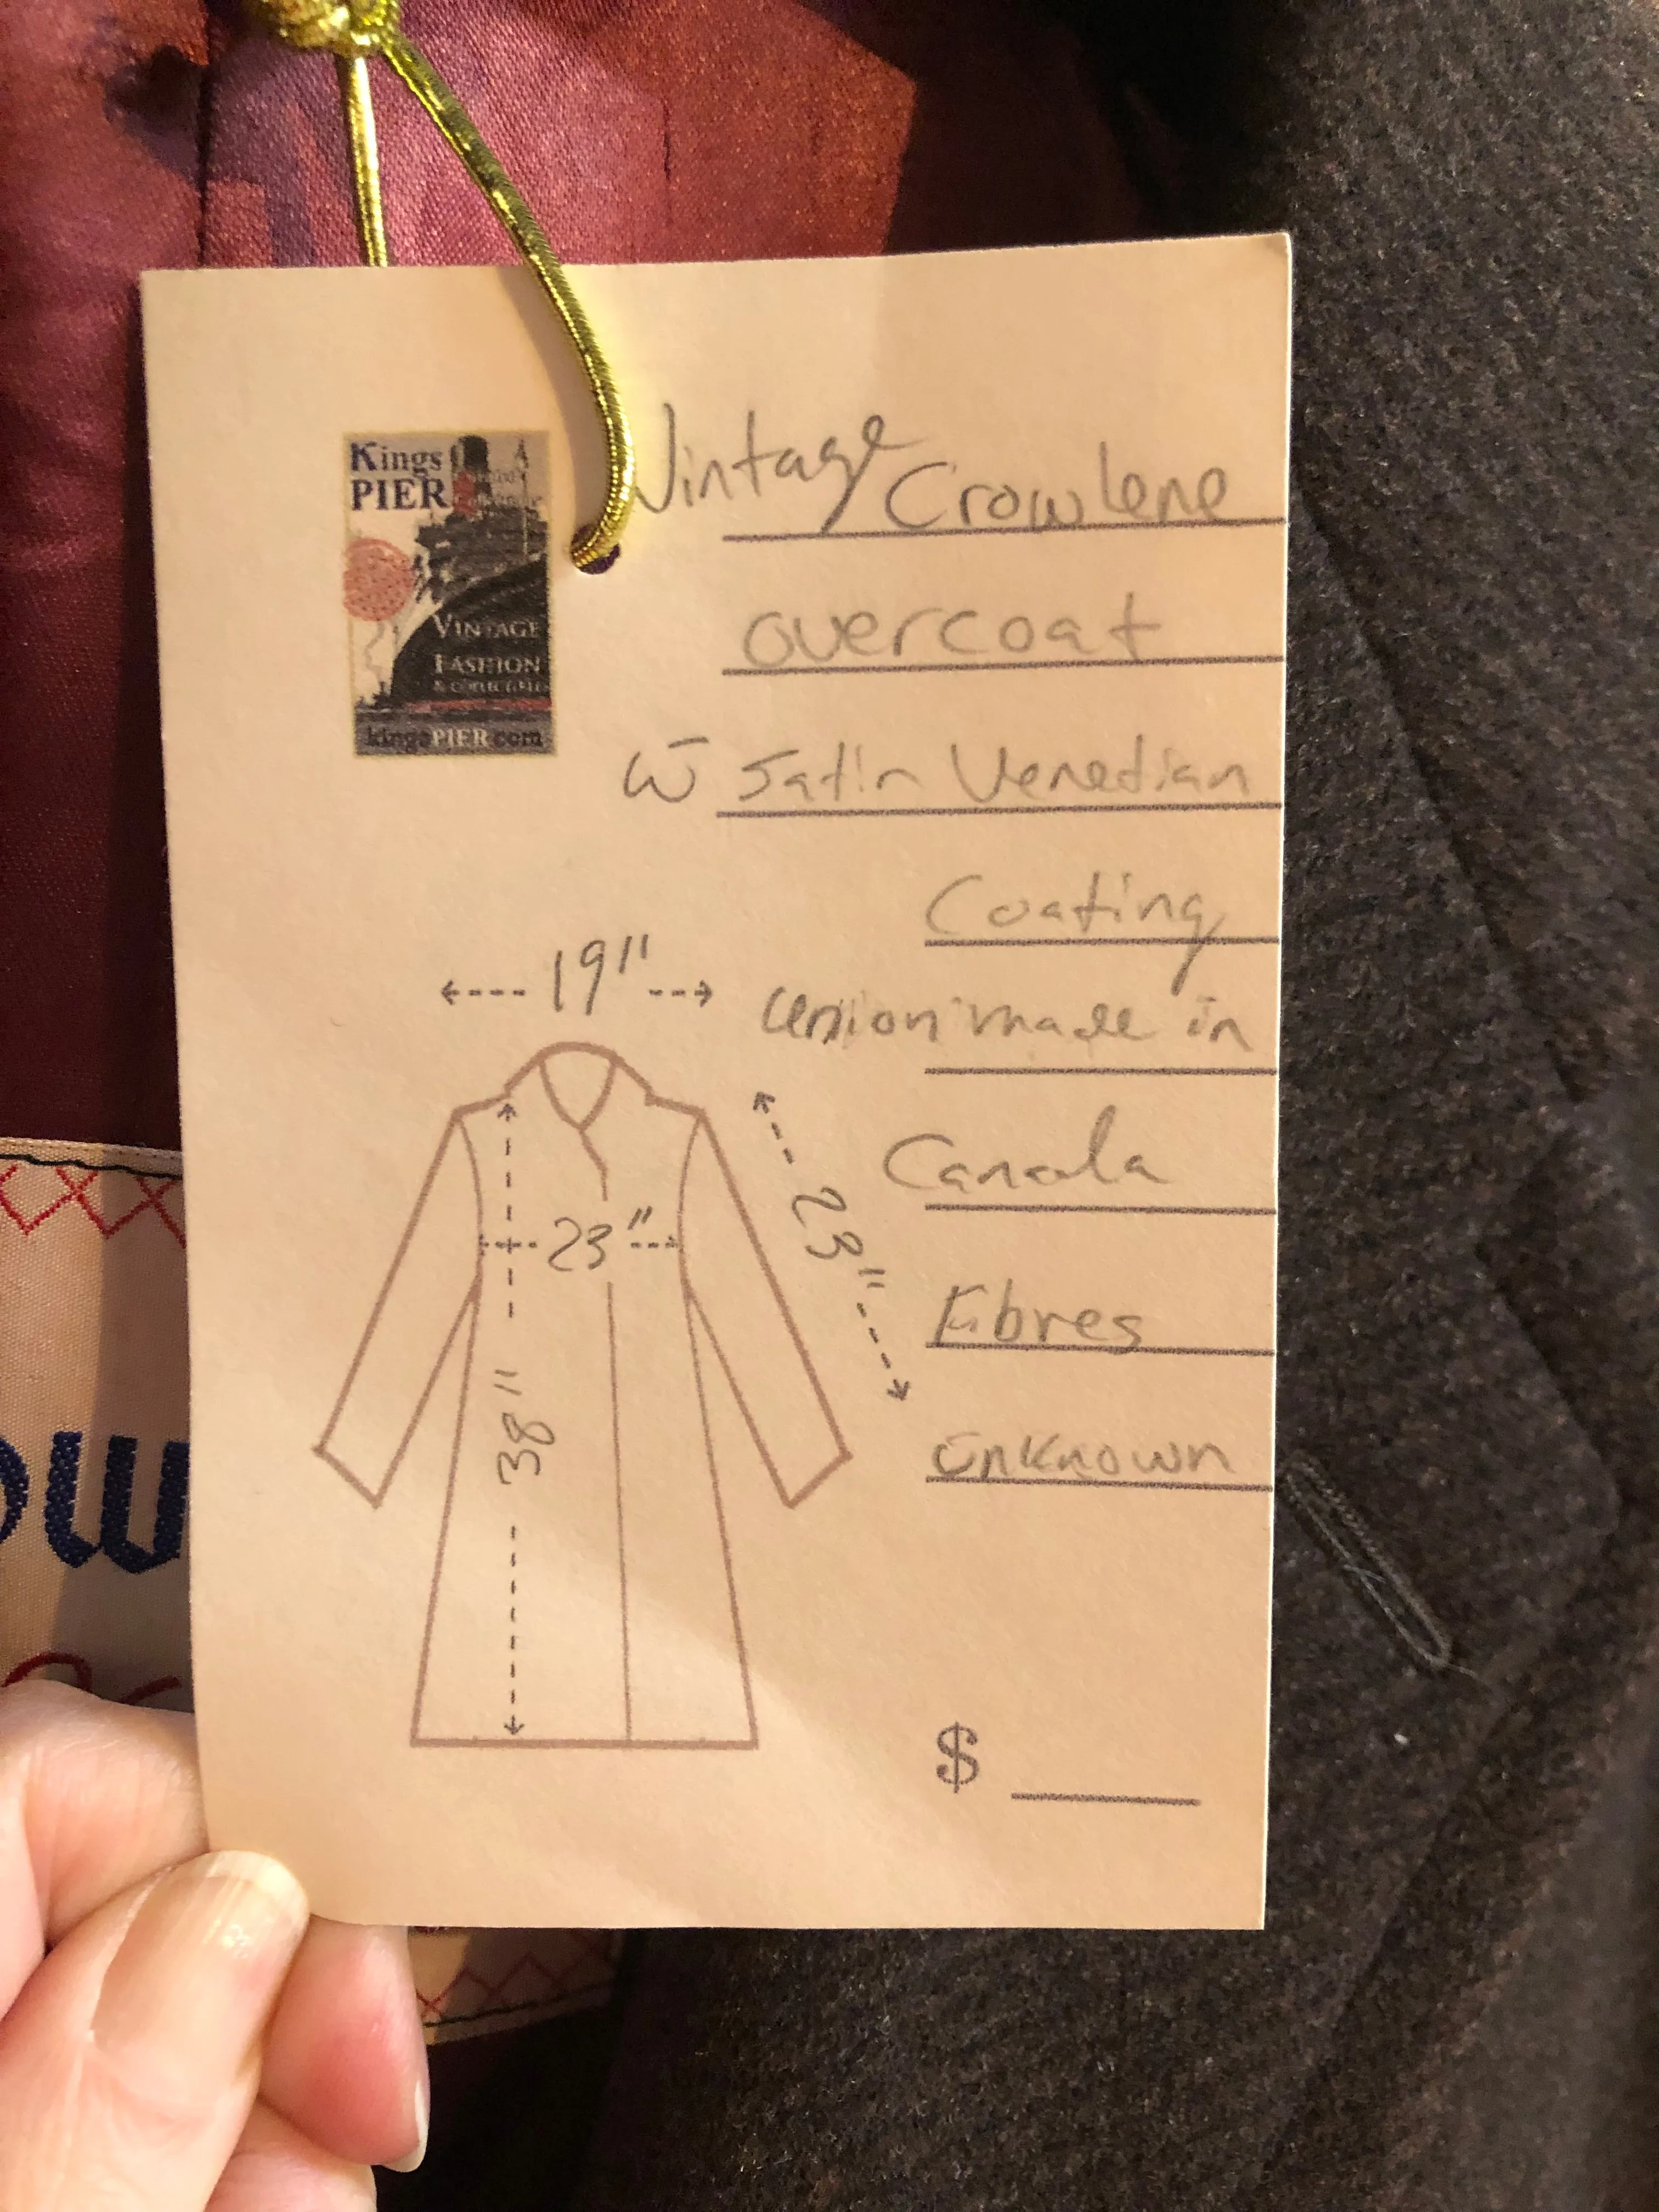 Kings
PIER
VINTAGE
FASHION
& COLLECTIBLES
kingsPIER.com
Vintage Crowlene
overcoat
w̄ Satin Venedian
Coating
Union made in
Canada
Fibres
Unknown
19"
23"
23"
38"
$
ow